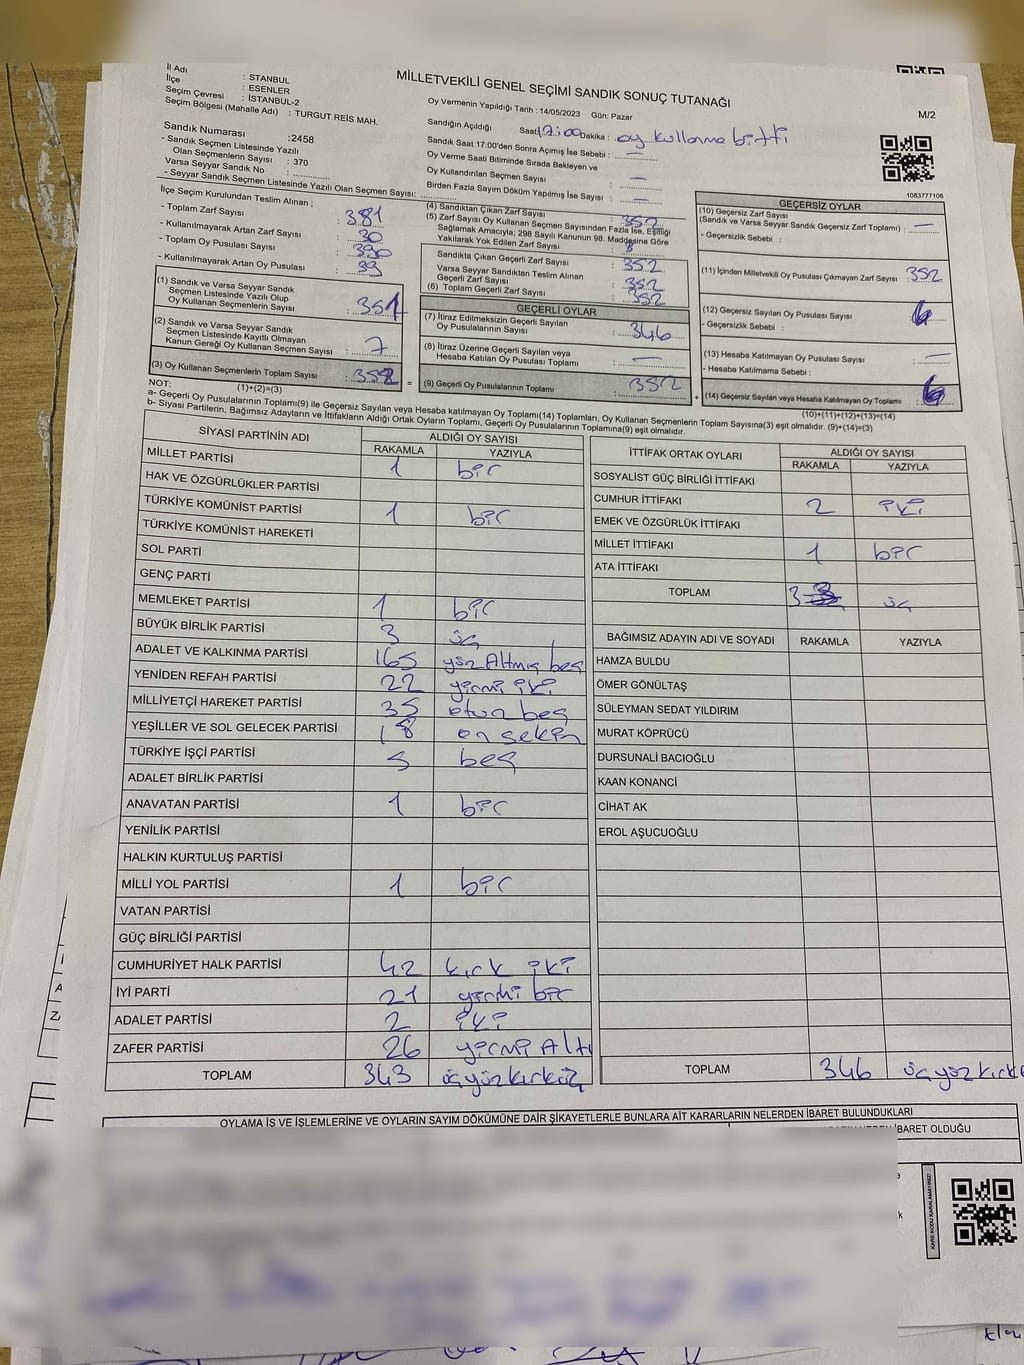 İl Adı : STANBUL
İlçe : ESENLER
Seçim Çevresi : İSTANBUL-2
Seçim Bölgesi (Mahalle Adı) : TURGUT REİS MAH.
MİLLETVEKİLİ GENEL SEÇİMİ SANDIK SONUÇ TUTANAĞI
M/2
Oy Vermenin Yapıldığı Tarih : 14/05/2023 Gün: Pazar
Sandığın Açıldığı Saat 17:00 Dakika : oy kullanma bitti
Sandık Saat 17:00'den Sonra Açımış İse Sebebi : —
Oy Verme Saati Bitiminde Sırada Bekleyen ve
Oy Kullandırılan Seçmen Sayısı : —
Birden Fazla Sayım Döküm Yapılmış İse Sayısı : —
Sandık Numarası :2458
- Sandık Seçmen Listesinde Yazılı
Olan Seçmenlerin Sayısı : 370
Varsa Seyyar Sandık No :
- Seyyar Sandık Seçmen Listesinde Yazılı Olan Seçmen Sayısı:
1083777106
İlçe Seçim Kurulundan Teslim Alınan ;
- Toplam Zarf Sayısı : 381
- Kullanılmayarak Artan Zarf Sayısı : 30
- Toplam Oy Pusulası Sayısı : 390
- Kullanılmayarak Artan Oy Pusulası : 39
(1) Sandık ve Varsa Seyyar Sandık
Seçmen Listesinde Yazılı Olup
Oy Kullanan Seçmenlerin Sayısı : 351
(2) Sandık ve Varsa Seyyar Sandık
Seçmen Listesinde Kayıtlı Olmayan
Kanun Gereği Oy Kullanan Seçmen Sayısı : 7
(3) Oy Kullanan Seçmenlerin Toplam Sayısı : 352 =
(1)+(2)=(3)
(4) Sandıktan Çıkan Zarf Sayısı : 352
(5) Zarf Sayısı Oy Kullanan Seçmen Sayısından Fazla İse, Eşitliği
Sağlamak Amacıyla; 298 Sayılı Kanunun 98. Maddesine Göre
Yakılarak Yok Edilen Zarf Sayısı :
Sandıkta Çıkan Geçerli Zarf Sayısı : 352
Varsa Seyyar Sandıktan Teslim Alınan
Geçerli Zarf Sayısı : 352
(6) Toplam Geçerli Zarf Sayısı : 352
GEÇERLİ OYLAR
(7) İtiraz Edilmeksizin Geçerli Sayılan
Oy Pusulalarının Sayısı : 346
(8) İtiraz Üzerine Geçerli Sayılan veya
Hesaba Katılan Oy Pusulası Toplamı : —
(9) Geçerli Oy Pusulalarının Toplamı : 352 +
GEÇERSİZ OYLAR
(10) Geçersiz Zarf Sayısı
(Sandık ve Varsa Seyyar Sandık Geçersiz Zarf Toplamı) : —
- Geçersizlik Sebebi :
(11) İçinden Milletvekili Oy Pusulası Çıkmayan Zarf Sayısı : 352
(12) Geçersiz Sayılan Oy Pusulası Sayısı : 6
- Geçersizlik Sebebi :
(13) Hesaba Katılmayan Oy Pusulası Sayısı : —
- Hesaba Katılmama Sebebi :
(14) Geçersiz Sayılan veya Hesaba Katılmayan Oy Toplamı : 6
(10)+(11)+(12)+(13)=(14)
NOT:
a- Geçerli Oy Pusulalarının Toplamı(9) ile Geçersiz Sayılan veya Hesaba katılmayan Oy Toplamı(14) Toplamları, Oy Kullanan Seçmenlerin Toplam Sayısına(3) eşit olmalıdır. (9)+(14)=(3)
b- Siyasi Partilerin, Bağımsız Adayların ve İttifakların Aldığı Ortak Oyların Toplamı, Geçerli Oy Pusulalarının Toplamına(9) eşit olmalıdır.
SİYASİ PARTİNİN ADI ALDIĞI OY SAYISI
RAKAMLA YAZIYLA
MİLLET PARTİSİ 1 bir
HAK VE ÖZGÜRLÜKLER PARTİSİ
TÜRKİYE KOMÜNİST PARTİSİ 1 bir
TÜRKİYE KOMÜNİST HAREKETİ
SOL PARTİ
GENÇ PARTİ
MEMLEKET PARTİSİ 1 bir
BÜYÜK BİRLİK PARTİSİ 3 üç
ADALET VE KALKINMA PARTİSİ 165 yüz Altmış beş
YENİDEN REFAH PARTİSİ 22 yirmi iki
MİLLİYETÇİ HAREKET PARTİSİ 35 otuz beş
YEŞİLLER VE SOL GELECEK PARTİSİ 18 on sekiz
TÜRKİYE İŞÇİ PARTİSİ 5 beş
ADALET BİRLİK PARTİSİ
ANAVATAN PARTİSİ 1 bir
YENİLİK PARTİSİ
HALKIN KURTULUŞ PARTİSİ
MİLLİ YOL PARTİSİ 1 bir
VATAN PARTİSİ
GÜÇ BİRLİĞİ PARTİSİ
CUMHURİYET HALK PARTİSİ 42 kırk iki
İYİ PARTİ 21 yirmi bir
ADALET PARTİSİ 2 iki
ZAFER PARTİSİ 26 yirmi Altı
TOPLAM 343 üçyüzkırküç
İTTİFAK ORTAK OYLARI ALDIĞI OY SAYISI
RAKAMLA YAZIYLA
SOSYALİST GÜÇ BİRLİĞİ İTTİFAKI
CUMHUR İTTİFAKI 2 iki
EMEK VE ÖZGÜRLÜK İTTİFAKI
MİLLET İTTİFAKI 1 bir
ATA İTTİFAKI
TOPLAM 3 üç
BAĞIMSIZ ADAYIN ADI VE SOYADI RAKAMLA YAZIYLA
HAMZA BULDU
ÖMER GÖNÜLTAŞ
SÜLEYMAN SEDAT YILDIRIM
MURAT KÖPRÜCÜ
DURSUNALİ BACIOĞLU
KAAN KONANCİ
CİHAT AK
EROL AŞUCUOĞLU
TOPLAM 346 üçyüzkırk
OYLAMA İŞ VE İŞLEMLERİNE VE OYLARIN SAYIM DÖKÜMÜNE DAİR ŞİKAYETLERLE BUNLARA AİT KARARLARIN NELERDEN İBARET BULUNDUKLARI
İBARET OLDUĞU